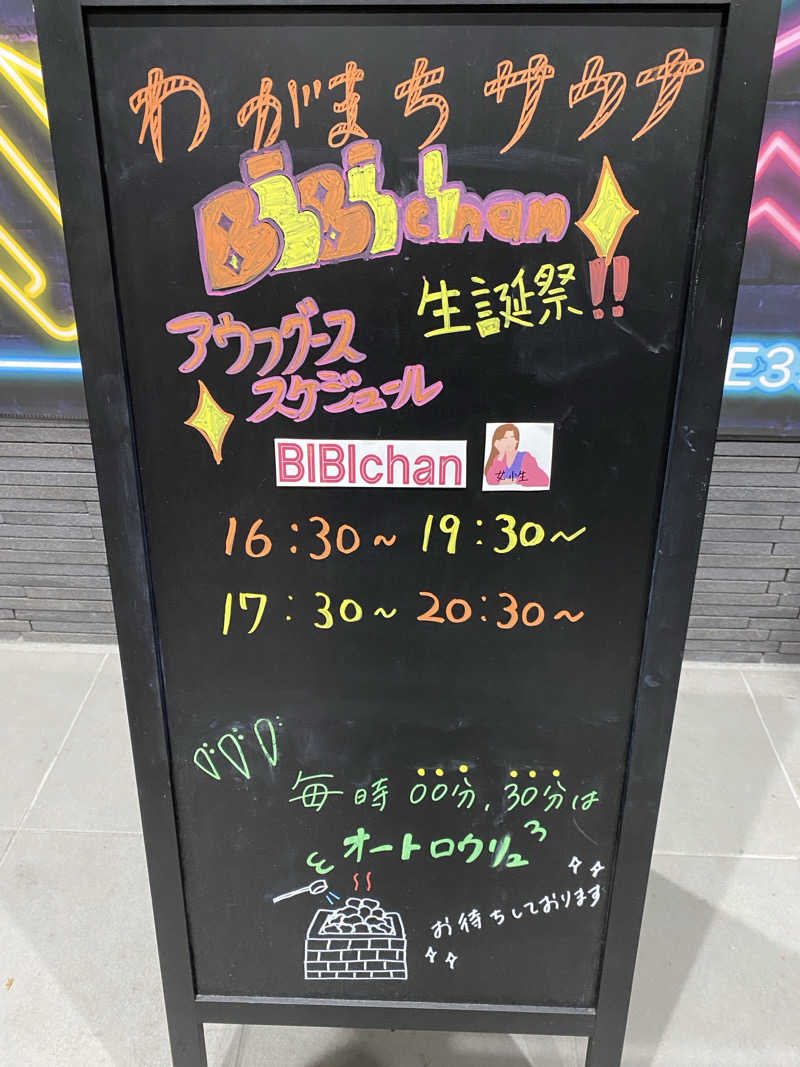 わがまちサウナ
BiBichan
生誕祭!!
アウフグース
スケジュール
BIBIchan
16:30~ 19:30~
17:30~ 20:30~
毎時 00分、30分は
オートロウリュ
お待ちしております
E3